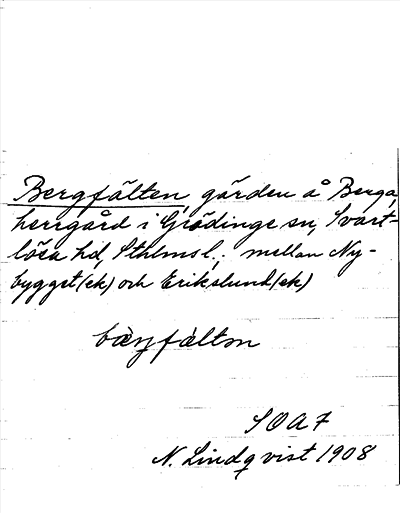 Bergfälten, gärden å Berga
herrgård i Grödinge sn, Svart-
lösa hd, Sthlmsl.; mellan Ny-
bygget (ek) och Erikslund (ek)
bæ̀rjfæ̀ltən
SOAF
N. Lindqvist 1908